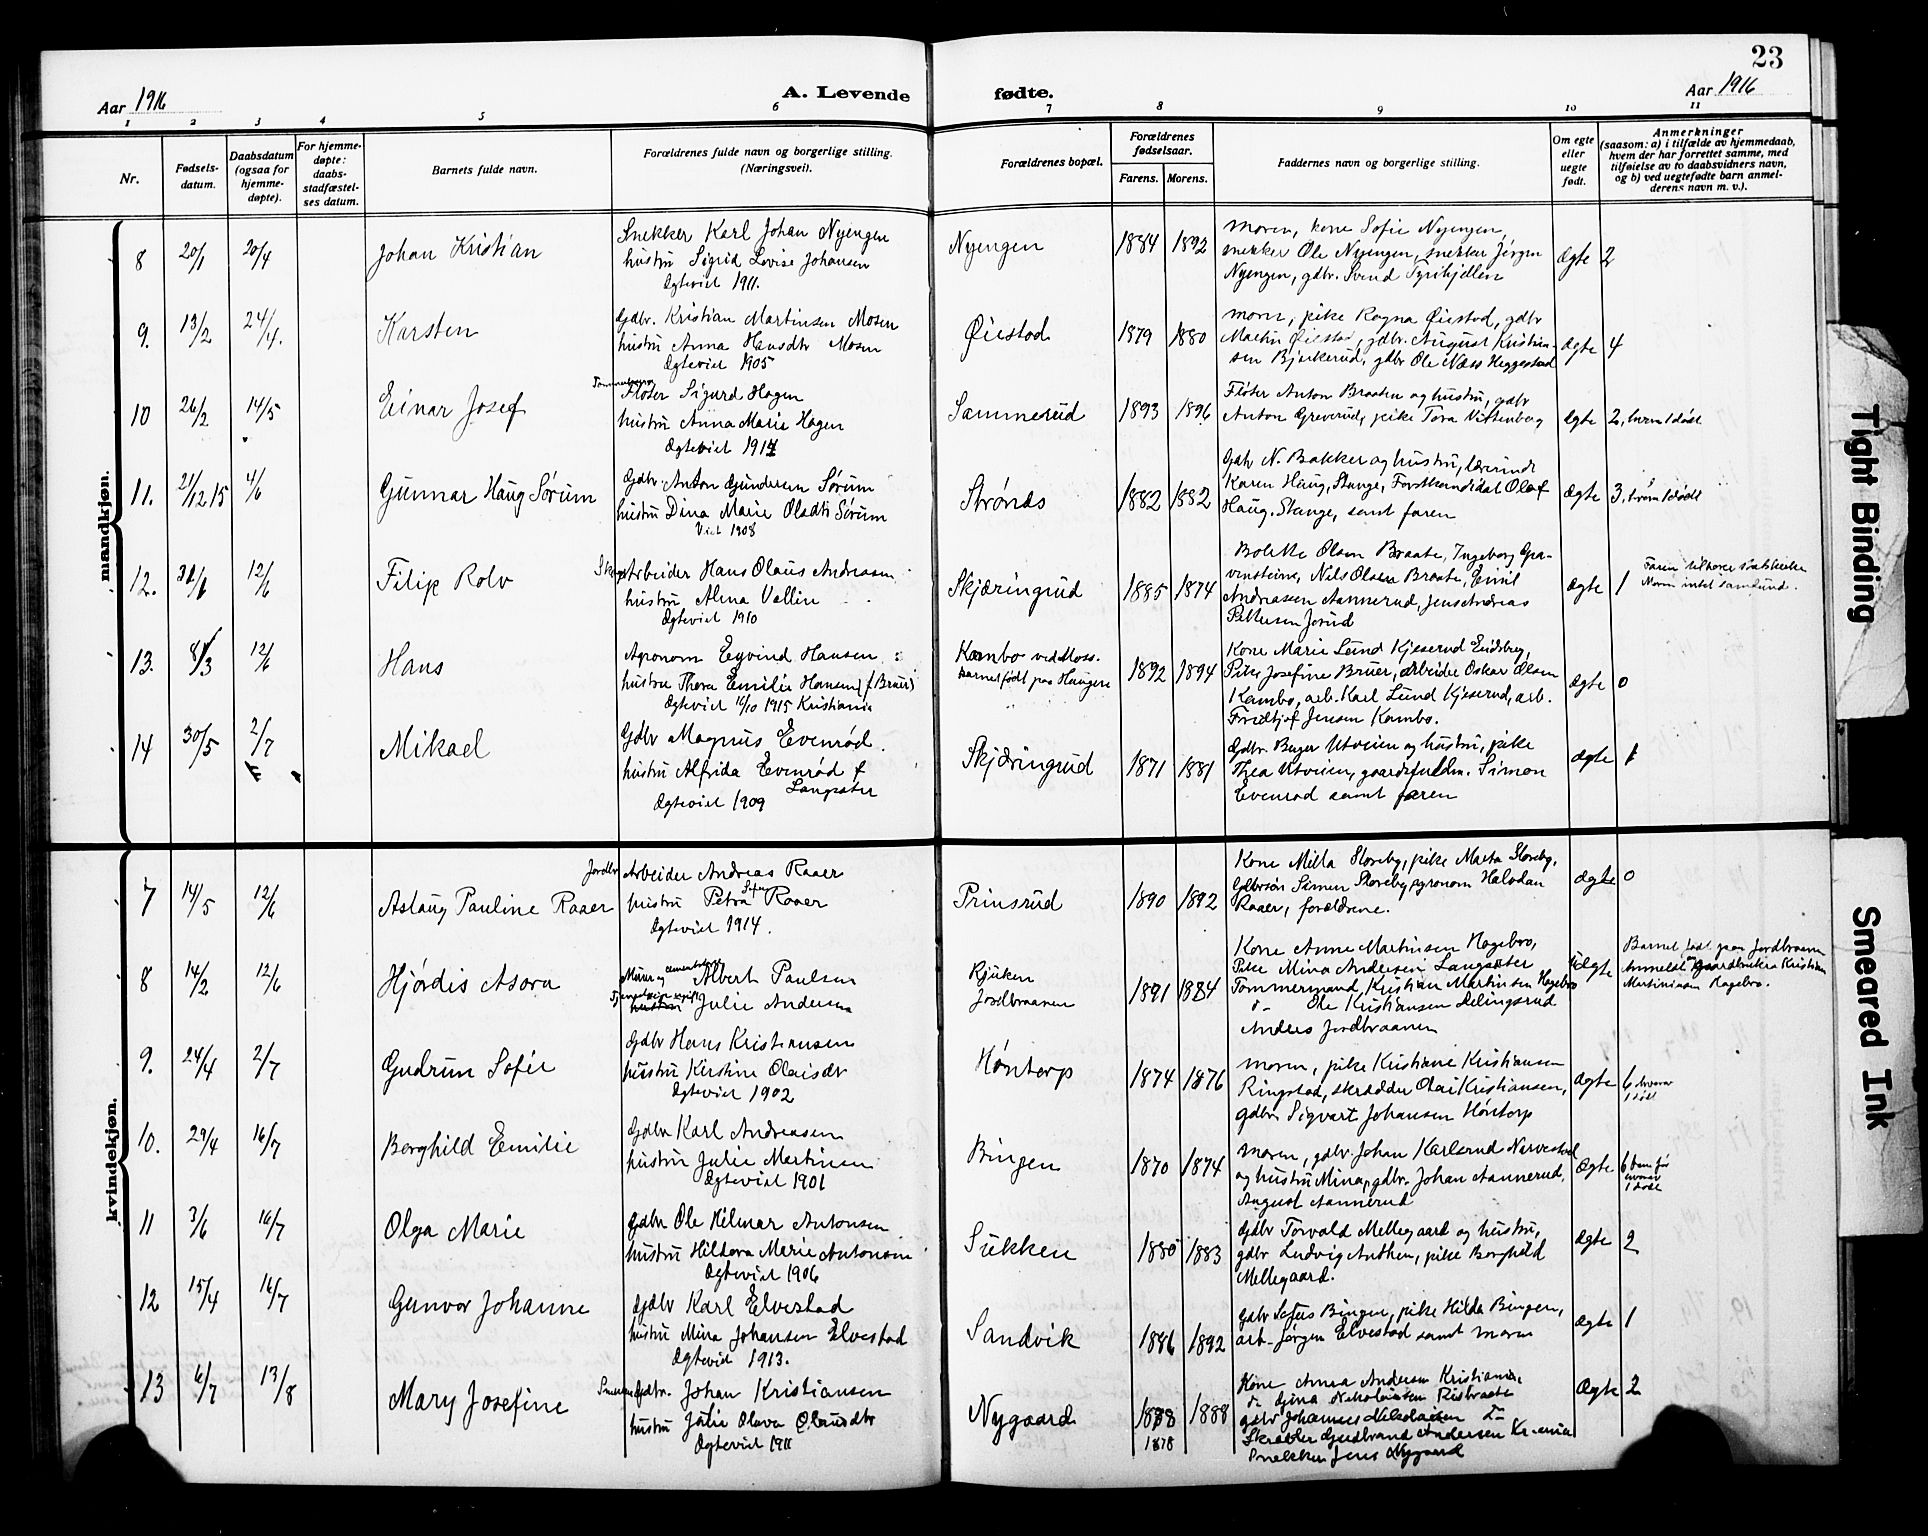 23
Aar 1916
A. Levende
fødte.
Aar 1916
1 2 3 4 5 6 7 8 9 10 11
Nr.
Fødsels-
datum.
Daabsdatum
(ogsaa for
hjemme-
døpte).
For hjemme-
døpte:
daabs-
stadfæstel-
ses datum.
Barnets fulde navn.
Forældrenes fulde navn og borgerlige stilling.
(Næringsvei).
Forældrenes bopæl.
Forældrenes
fødselsaar.
Farens. Morens.
Faddernes navn og borgerlige stilling.
Om egte
eller
uegte
født.
Anmerkninger
(saasom: a) i tilfælde av hjemmedaab,
hvem der har forrettet samme, med
tilføielse av to daabsvidners navn,
og b) ved uegtefødte barn anmel-
derens navn m. v.).
mandkjøn.
8 20/1 20/4 Johan Kristian
Snekker Karl Johan Nyengen
hustru Sigrid Lovise Johansen
Ægteviet 1911.
Nyengen 1884 1892
Moren, kone Sofie Nyengen,
snekker Ole Nyengen, snekker Jörgen
Nyengen, gdbr. Svend
Ægte 2
9. 13/2 24/4. Karsten
Gdbr. Kristian Martinsen Mosen
hustru Anna Hansdtr Mosen
Ægteviet 1905
Øiestad 1879 1880
Moren, pike Ragna Øiestad, gdbr
Martin Øiestad, gdbr. August Kristian-
sen Bjerkerud, gdbr Ole Næss Heggestad
Ægte 4
10 26/2 14/5 Einar Josef
Fløter Sigurd Hagen
hustru Anna Marie Hagen
Ægteviet 1914
Sammerud 1893 1896
Fløter Anton Braaten og hustru, gdbr
Anton Greverud, pike Tora Vittenberg
Ægte 2, hvorav 1 død
11. 21/12 15 4/6 Gunnar Haug Sørum
Gdbr. Anton Gundersen Sørum
hustru Dina Marie Olsdtr Sørum
Viet 1908
Strønes 1882 1882
Gdbr N. Bakker og hustru, lærerinde
Karen Haug, Stange, Forstkandidat Olaf
Haug, Stange, samt faren
Ægte 3, hvorav 1 død
12. 31/1 12/6 Filip Rolv
Arbeider Hans Olaus Andreasen
hustru Alma Vallin
Ægteviet 1910
Skjæringrud 1885 1874
Bolette Olsen Braate, Ingeborg Gra-
vensteine, Nils Olsen Braate, Emil
Andreasen Aannerud, Jens Andreas
Pettersen Jorud
Ægte 1
Faren tilhører statskirke
Moren intet samfund.
13. 8/3 12/6 Hans
Agronom Eyvind Hansen
hustru Thora Emilie Hansen (f Bruer)
Ægteviet 16/10 1915 Kristiania
Kambo ved Moss.
barnet født paa Haugen
1892 1894
Kone Marie Lund Kjeserud Eidsberg,
Pike Josefine Bruer, arbeider Oskar Olsen
Kambo, arb. Karl Lund Kjeserud, arb.
Fridtjof Jensen Kambo.
Ægte 0
14 30/5 2/7 Mikael
Gdbr Magnus Evenrød.
hustru Alfrida Evenrød f
Langsæter
Ægteviet 1909
Skjæringrud 1871 1881
Gdbr. Birger Utveien og hustru, pike
Thea Utveien, gaardsfuldm. Simon
Evenrød samt faren
Ægte 1
kvindekjøn.
7 14/5 12/6 Aslaug Pauline Raaer
Jordbr Arbeider Andreas Raaer
hustru Petra Raaer
Ægteviet 1914.
Prinsrud 1890 1892
Kone Milla Storeby, pike Marta Storeby,
Gdbrsøn Simen Storeby, agronom Halvdan
Raaer, forældrene.
Ægte 0
8 14/2 12/6 Hjördis Asora
Murer og Albert Paulsen
Julie Andersen
Rjuken
Jordbraaten
1891 1884
Kone Anne Martinsen Hagebro,
Pike Mina Andersen Langsæter
Tømmermand Kristian Martinsen Hagebro
d- Ole Kristiansen Delingsrud
Anders Jordbraaten
Uægte
Barnet født paa Jordbraaten
Anmeldt av gaardbruker Kristian
Martiniusen Hagebro.
9. 24/4 2/7 Gudrun Sofie
Gdbr Hans Kristiansen
hustru Kirstine Olaisdtr
Ægteviet 1902
Høntorp 1874 1876
Moren, pike Kristiane Kristiansen
Ringstad, skrædder Olai Kristiansen,
gdbr Sigvart Johansen Høntorp
Ægte 6 hvorav
1 død
10. 29/4 16/7 Borghild Emilie
Gdbr Karl Andreasen
hustru Julie Martinsen
Ægteviet 1901
Bingen 1870 1874
Moren, gdbr. Johan Karlsrud Narvestad
og hustru Mina, gdbr. Johan Aannerud,
August Aannerud
Ægte 6 barn før
hvorav
1 død
11 3/6 16/7 Olga Marie
Gdbr Ole Hilmar Antonsen
hustru Hildora Marie Antonsen
Ægteviet 1906
Sukken 1880 1883
Gdbr Torvald Mellegaard og hustru,
gdbr Ludvig Anthon, pike Borghild
Mellegaard.
Ægte 2
12 15/4 16/7 Gunvor Johanne
Gdbr Karl Elvestad
hustru Mina Johansen Elvestad
Ægteviet 1913.
Sandvik 1886 1892
Gdbr Bingen, pike Hilda Bingen,
arb. Jørgen Elvestad samt moren
Ægte 1
13 6/7 13/8 Mary Josefine
Gdbr. Johan Kristiansen
hustru Julie Olava Olausdtr
Ægteviet 1911
Nygaard 1888
1878
Kone Anna Andersen Kristiania,
d- Gina Nikolaisen Risbraate
gdbr Johannes Nikolaisen d-
Skræder Gudbrand Andersen Kr.ania
Snekker Jens Nygaard
Ægte 2
Tight Binding
Smeared Ink